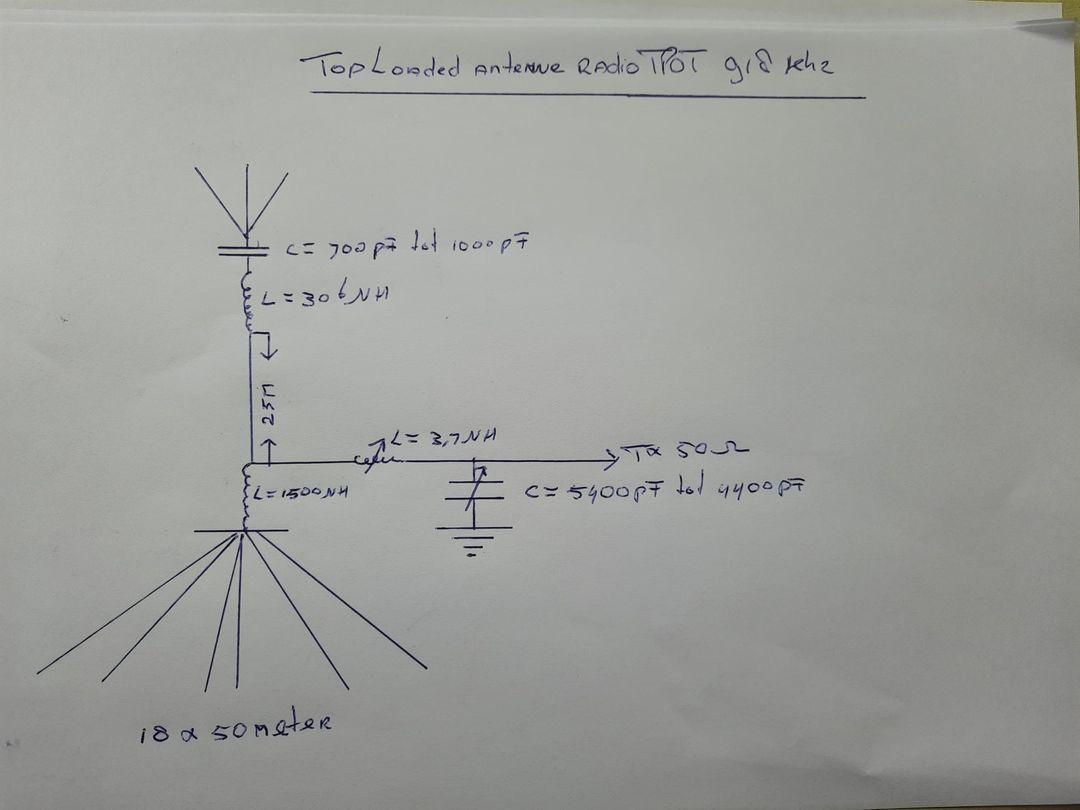 TopLoaded antenne RadioTPOT 918 khz
C= 700pF tot 1000pF
L=306NH
25M
L= 3,7NH
Tx 50Ω
L=1500NH
C= 5400pF tot 4400pF
18 x 50 meter